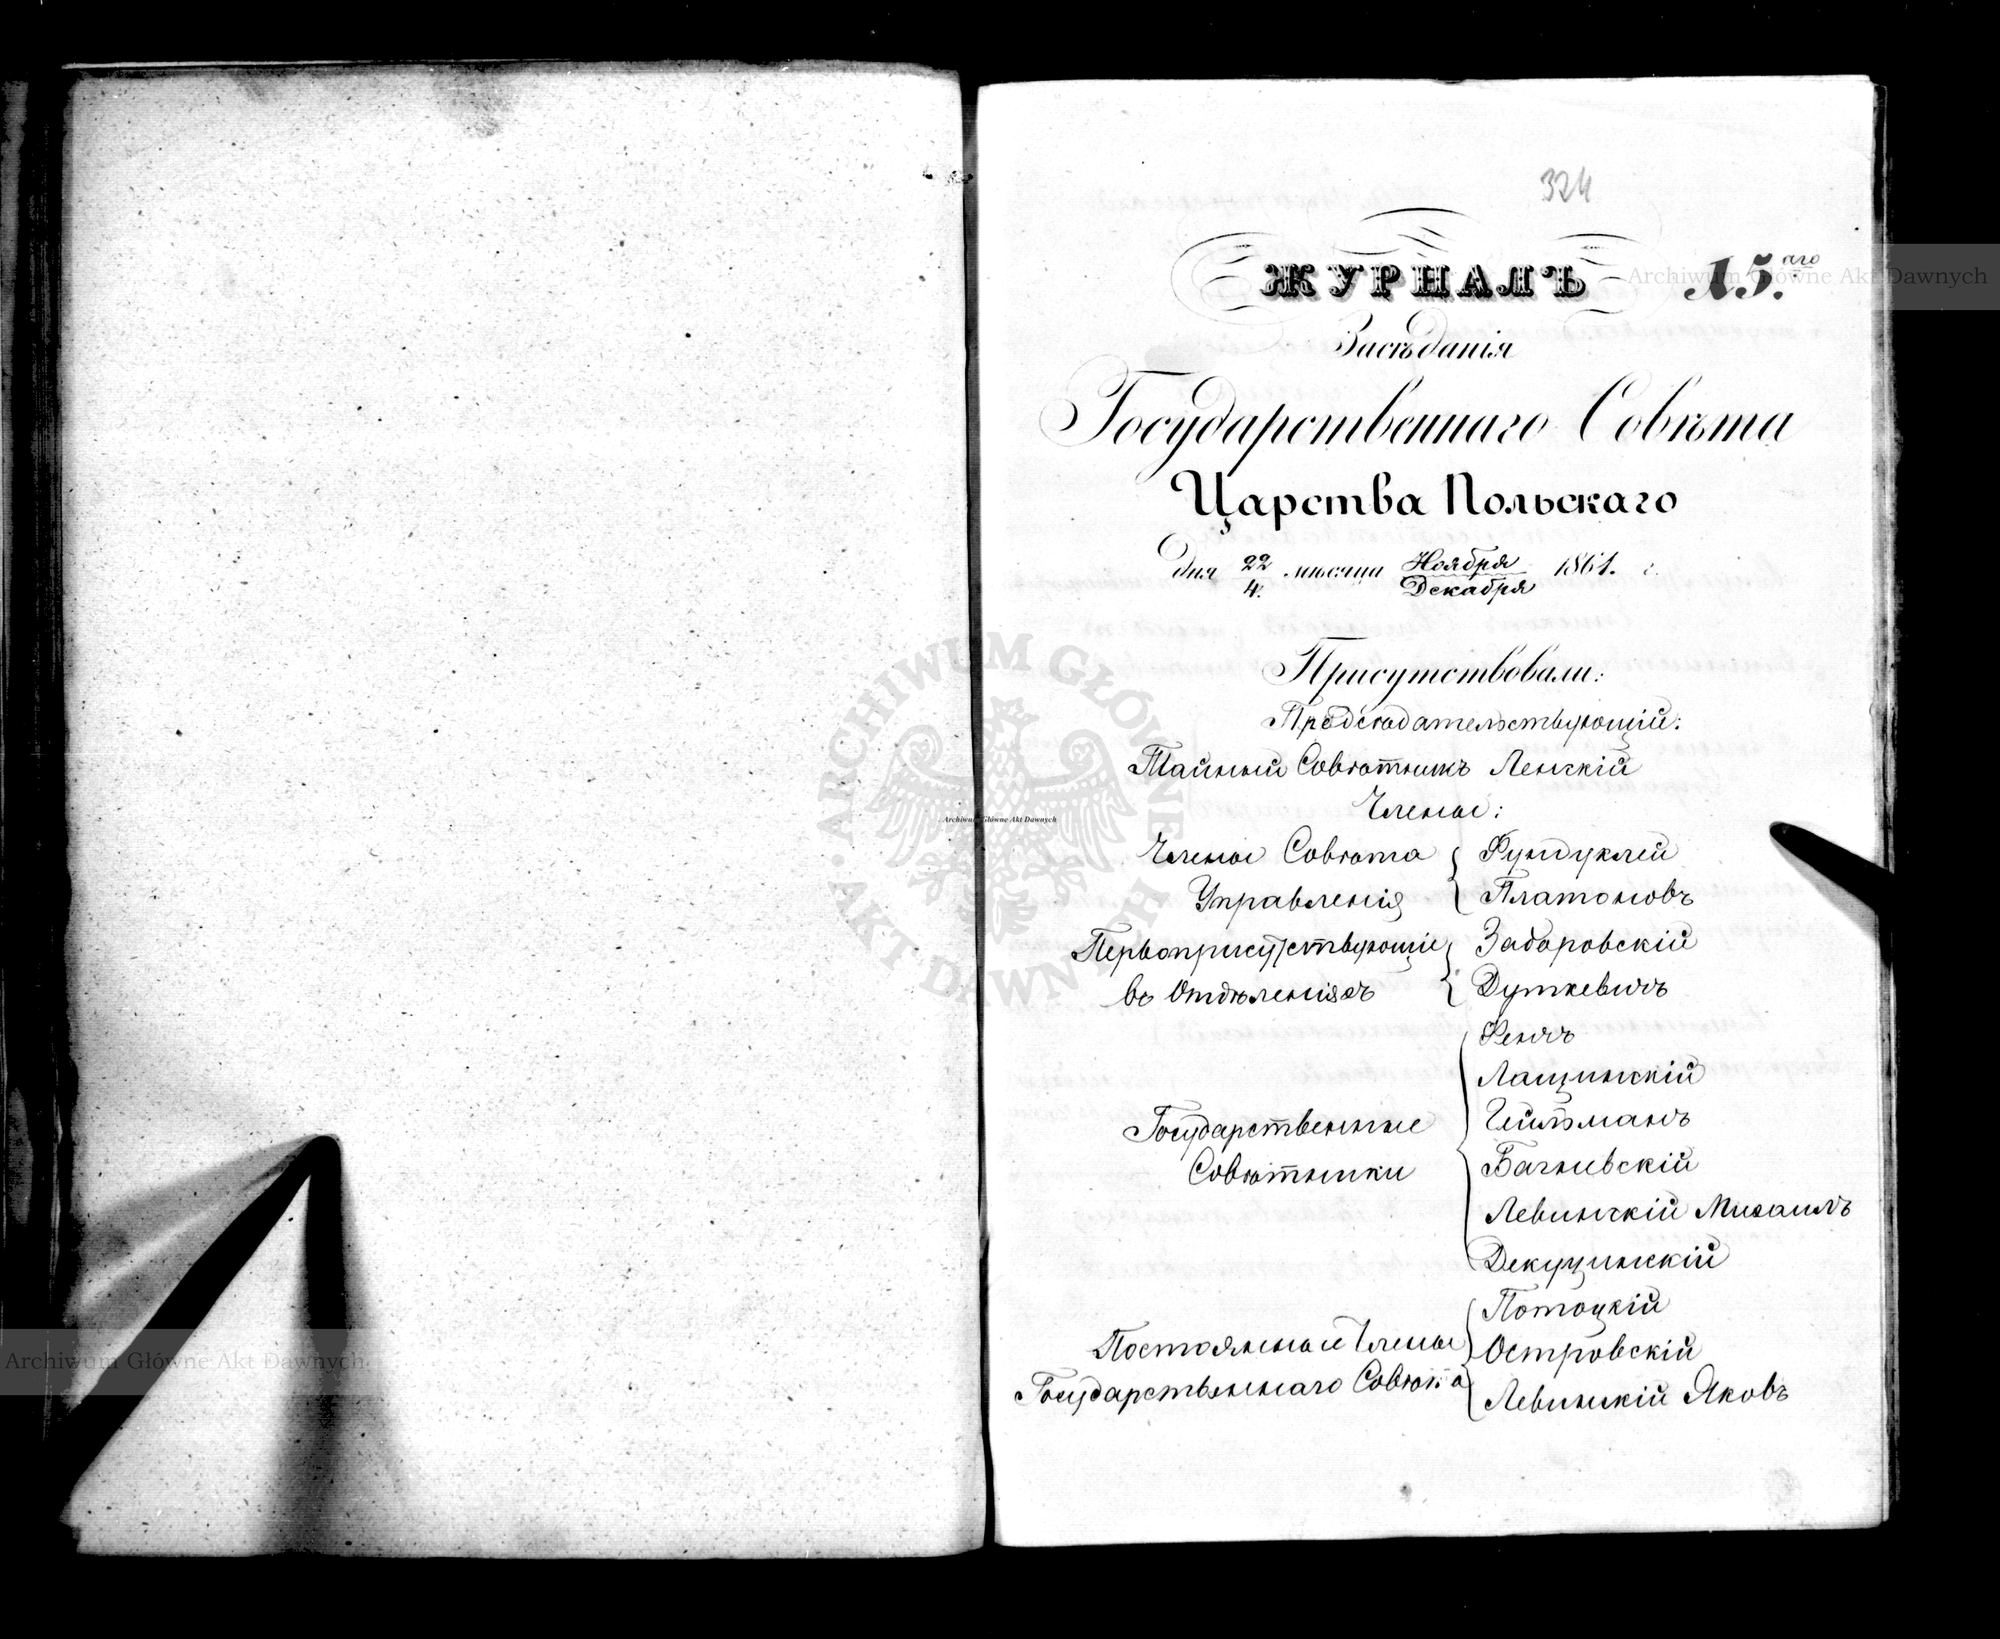 324
ЖУРНАЛЪ 15.аго
Засѣданія
Государственнаго Совѣта
Царства Польскаго
дня 22/4. мѣсяца Ноября/Декабря 1861. г.
Присутствовали:
Предсѣдательствующій:
Тайный Совѣтникъ Ленскій
Члены:
Члены Совѣта Управленія { Фундуклей
Платоновъ
Первоприсутствующіе въ Отдѣленіяхъ { Заборовскій
Дуткевичъ
Государственные Совѣтники { Фенчъ
Лащинскій
Гейльманъ
Багневскій
Левинскій Михаилъ
Декуцинскій
Постоянные Члены Государственнаго Совѣта { Потоцкій
Островскій
Левинскій Яковъ
ARCHIWUM GŁÓWNE AKT DAWNYCH
Archiwum Główne Akt Dawnych
Archiwum Główne Akt Dawnych
Archiwum Główne Akt Dawnych